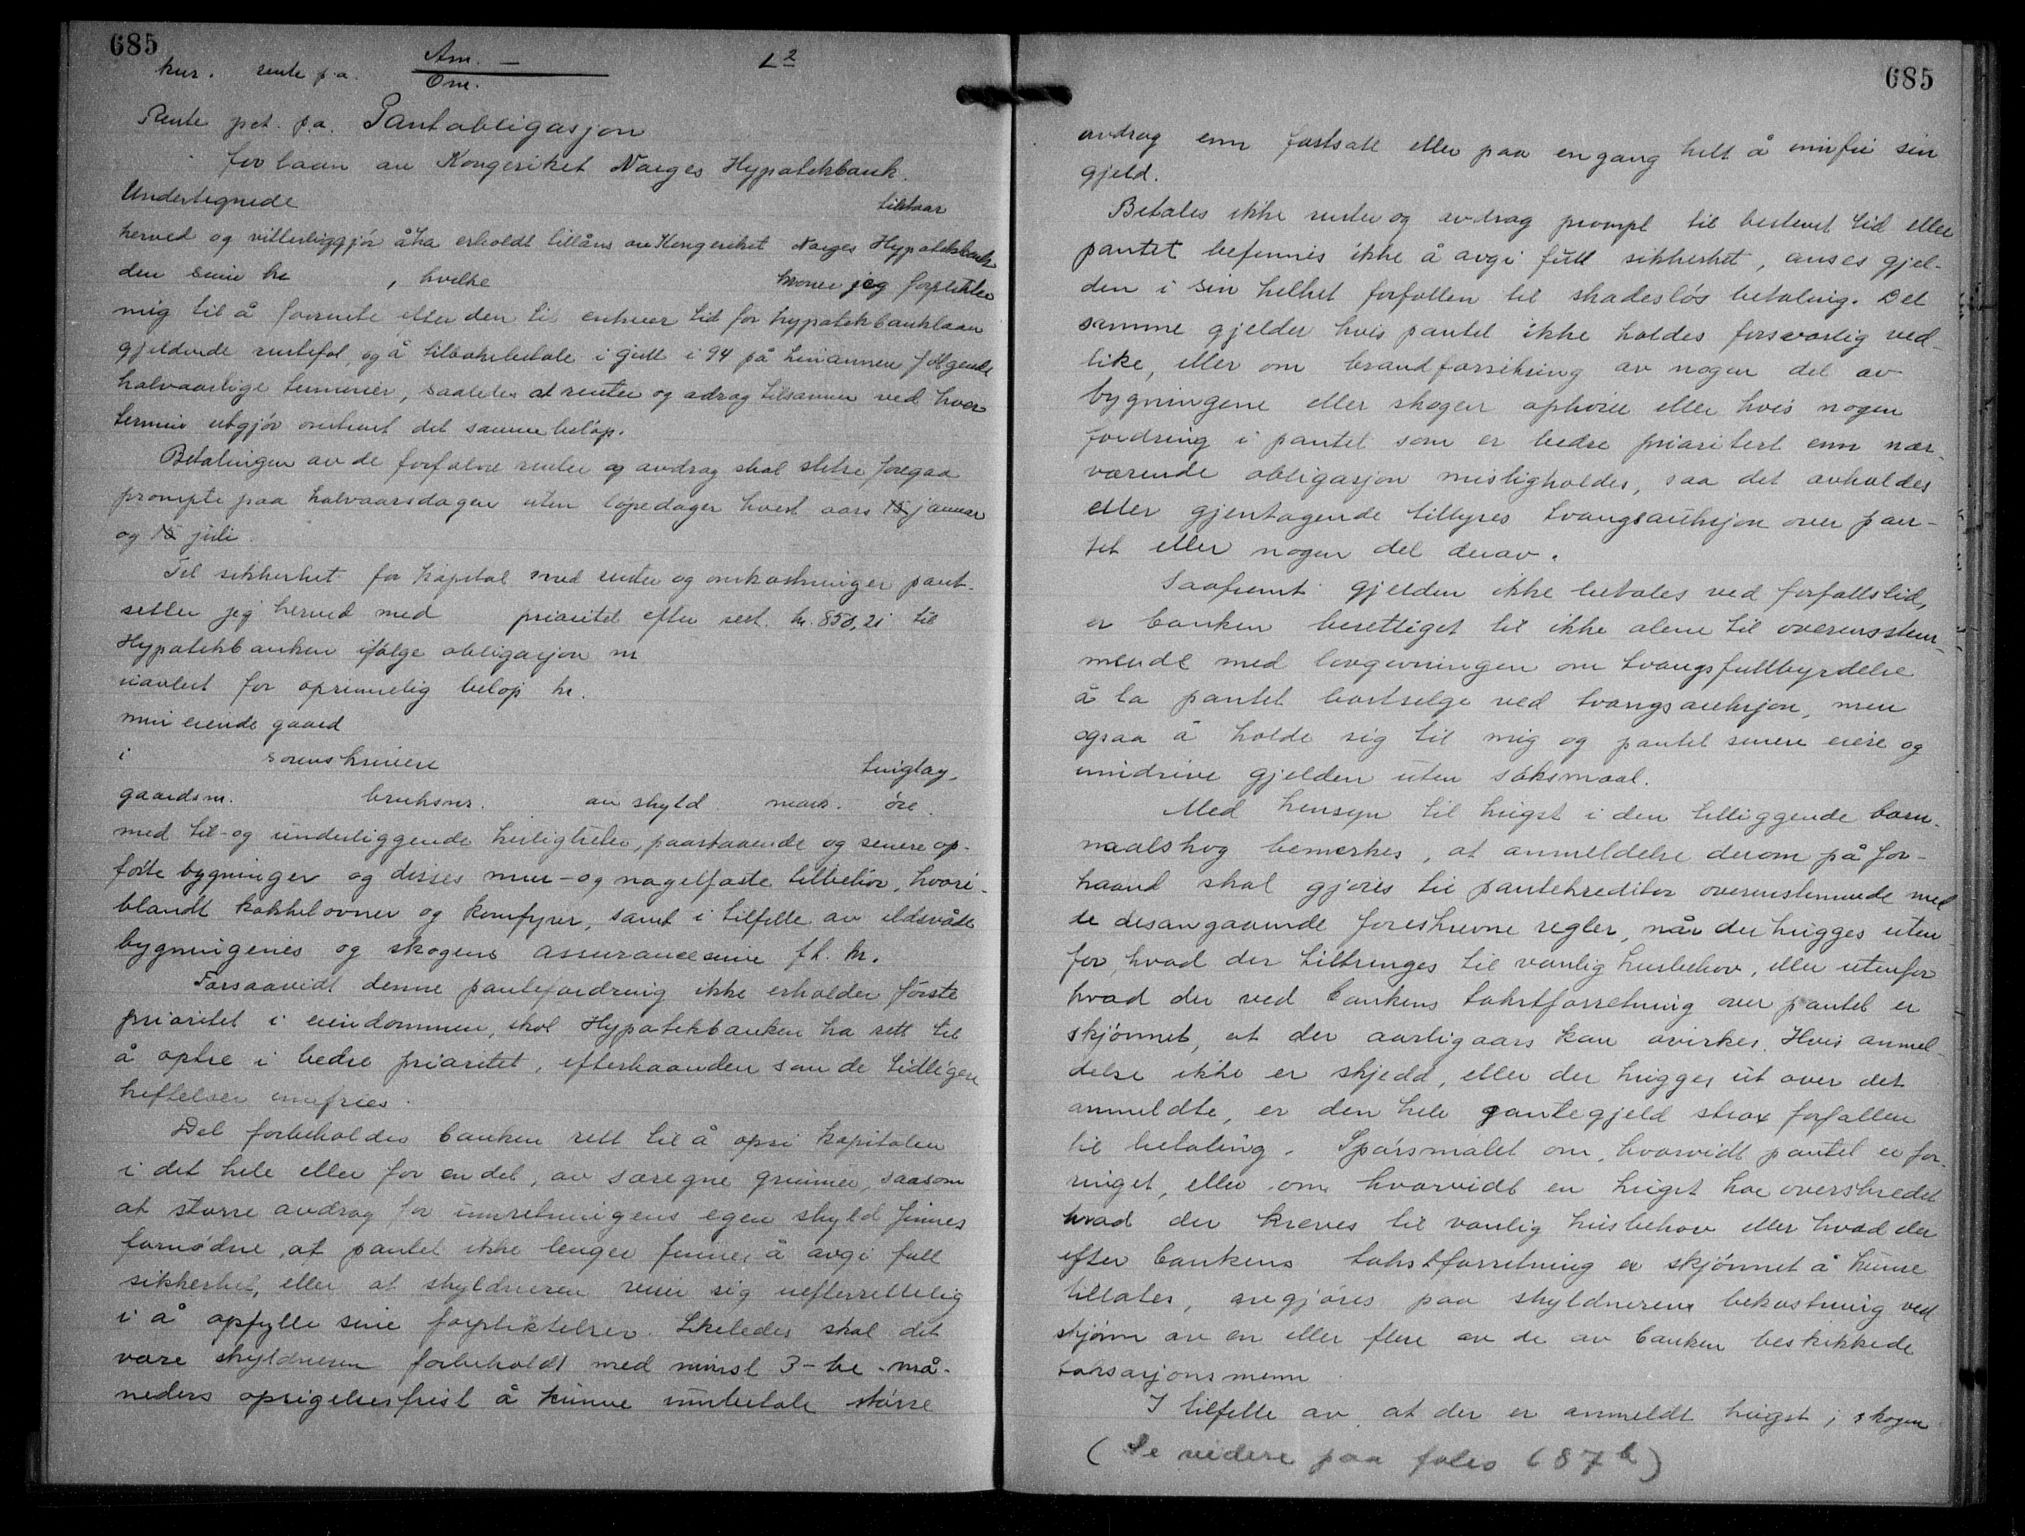 685
kur. rente p.a. Am. — L2
Om.
Rente pct. p.a. Pantobligasjon
for laan av Kongeriket Norges Hypotekbank.
Undertegnede tilstaar
herved og vitterliggjør å ha erholdt tillåns av Kongeriket Norges Hypotekbank
den sum kr , hvilke kroner jeg forplikter
mig til å forrente efter den til enhver tid for hypotekbanklaan
gjeldende rentefot, og å tilbakebetale i gull i 94 på hinannen følgende
halvaarlige terminer, saaledes at renter og adrag tilsammen ved hver
termin utgjør omtrent det samme beløp.
Betalingen av de forfalne renter og avdrag skal stetse foregaa
prompte paa halvaarsdagen uten løpedager hvert aars 15 januar
og 15 juli.
Til sikkerhet for kapital med renter og omkostninger pant-
setter jeg herved med prioritet efter rest. kr. 850,21 til
Hypotekbanken ifølge obligasjon nr
utavlert for oprinnelig beløp kr.
min eiende gaard
i sorenskriveri tinglag,
gaardsnr. bruksnr. av skyld mark. øre.
med til- og underliggende herligheter, paastaaende og senere op-
førte bygninger og disses mur- og nagelfaste tilbehør, hvori-
blandt kakkelovner og komfyrer, samt i tilfelle av ildsvåde
bygningenes og skogens assurancesum f.t. kr.
Forsaavidt denne pantefordring ikke erholder første
prioritet i eiendommen, skal Hypotekbanken ha rett til
å optre i bedre prioritet, efterhaanden som de tidligere
heftelser innfries.
Det forbeholdes banken rett til å opsi kapitalen
i det hele eller for en del, av særegne grunner, saasom
at større avdrag for innretningens egen skyld finnes
fornødne, at pantet ikke lenger finnes å avgi full
sikkerhet, eller at skyldneren viser sig uefterrettelig
i å opfylle sine forpliktelser. Likeledes skal det
være skyldneren forbeholdt med minst 3-tre -må-
neders opsigelsesfrist å kunne innbetale større
685
avdrag enn fastsatt eller paa en gang helt å innfri sin
gjeld.
Betales ikke renter og avdrag prompt til bestemt tid eller
pantet befinnes ikke å avgi full sikkerhet, anses gjel-
den i sin helhet forfallen til skadesløs betaling. Det
samme gjelder hvis pantet ikke holdes forsvarlig ved-
like, eller om brandforsikring av nogen del av
bygningene eller skogen ophører eller hvis nogen
fordring i pantet som er bedre prioritert enn nær-
værende obligasjon misligholdes, saa det avholdes
eller gjentagende tillyses tvangsauksjon over pan-
tet eller nogen del derav.
Saafremt gjelden ikke betales ved forfallstid,
er banken berettiget til ikke alene til overensstem-
mende med lovgivningen om tvangsfullbyrdelse
å la pantet bortselge ved tvangsauksjon, men
ogsaa å holde sig til mig og pantet senere eiere og
inndrive gjelden uten søksmaal.
Med hensyn til hugst i den tilliggende barn-
naalskog bemerkes, at anmeldelse derom på for-
haand skal gjøres til pantekreditor overenstemmende med
de desangaaende foreskrevne regler, når der hugges uten
for, hvad der tiltrenges til vanlig husbehov, eller utenfor
hvad der ved bankens takstforretning over pantet er
skjønnet, at der aarligaars kan avirkes. Hvis anmel-
delse ikke er skjedd, eller der hugges ut over det
anmeldte, er den hele pantegjeld strax forfallen
til betaling. Spørsmålet om, hvorvidt pantet er for-
ringet, eller om hvorvidt en hugst har overskredet
hvad der kreves til vanlig husbehov eller hvad der
efter bankens takstforretning er skjønnet å kunne
tillates, avgjøres paa skyldnerens bekostning ved
skjønn av en eller flere av de av banken beskikkede
taksasjonsmenn
I tilfelle av, at der er anmeldt hugst i skogen
(Se videre paa folio 687b)